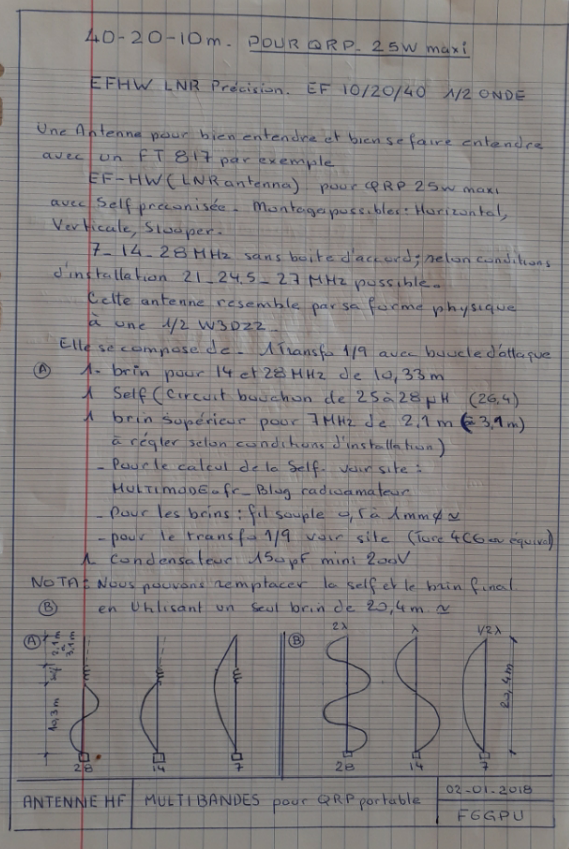 40-20-10m. POUR QRP. 25W maxi
EFHW LNR Précision. EF 10/20/40 1/2 ONDE
Une Antenne pour bien entendre et bien se faire entendre
avec un FT 817 par exemple
EF-HW (LNR antenna) pour QRP 25W maxi
avec Self préconisée. Montages possibles: Horizontal,
Verticale, Slooper.
7-14-28 MHz sans boite d'accord; selon conditions
d'installation 21-24.5-27 MHz possible.
Cette antenne resemble par sa forme physique
à une 1/2 W3DZZ.
Elle se compose de. 1 Transfo 1/9 avec boucle d'attaque
(A) 1- brin pour 14 et 28 MHz de 10,33m
1 Self (Circuit bouchon de 25 à 28 µH (26,4)
1 brin supérieur pour 7MHz de 2,1m (à 3,1m)
à régler selon conditions d'installation)
- Pour le calcul de la Self. voir site:
MULTIMODE.fr_Blog radioamateur
- Pour les brins: fil souple 0,5 à 1mm ø ≈
- pour le transfo 1/9 voir site (Tore 4C6 ou équiva)
1 condensateur 150pF mini 200V
NOTA: Nous pouvons remplacer la self et le brin final
(B) en Utilisant un seul brin de 20,4m ≈
(A) 2,1m à 3,1m (B) 2λ λ 1/2λ
10,3m self 20,4m
28 14 7 28 14 7
ANTENNE HF MULTIBANDES pour QRP portable 02-01-2018
F6GPU